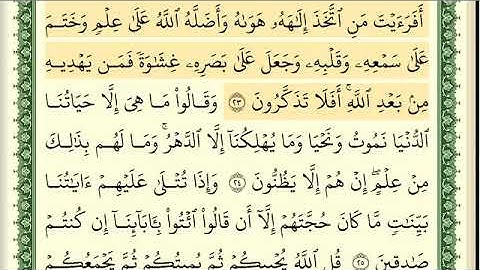 أَفَرَءَيْتَ مَنِ ٱتَّخَذَ إِلَٰهَهُۥ هَوَىٰهُ وَأَضَلَّهُ ٱللَّهُ عَلَىٰ عِلْمٍ وَخَتَمَ
عَلَىٰ سَمْعِهِۦ وَقَلْبِهِۦ وَجَعَلَ عَلَىٰ بَصَرِهِۦ غِشَٰوَةً فَمَن يَهْدِيهِ
مِنۢ بَعْدِ ٱللَّهِ ۚ أَفَلَا تَذَكَّرُونَ ٢٣ وَقَالُوا۟ مَا هِىَ إِلَّا حَيَاتُنَا
ٱلدُّنْيَا نَمُوتُ وَنَحْيَا وَمَا يُهْلِكُنَآ إِلَّا ٱلدَّهْرُ ۚ وَمَا لَهُم بِذَٰلِكَ
مِنْ عِلْمٍ ۖ إِنْ هُمْ إِلَّا يَظُنُّونَ ٢٤ وَإِذَا تُتْلَىٰ عَلَيْهِمْ ءَايَٰتُنَا
بَيِّنَٰتٍ مَّا كَانَ حُجَّتَهُمْ إِلَّآ أَن قَالُوا۟ ٱئْتُوا۟ بِـَٔابَآئِنَآ إِن كُنتُمْ
صَٰدِقِينَ ٢٥ قُلِ ٱللَّهُ يُحْيِيكُمْ ثُمَّ يُمِيتُكُمْ ثُمَّ يَجْمَعُكُمْ